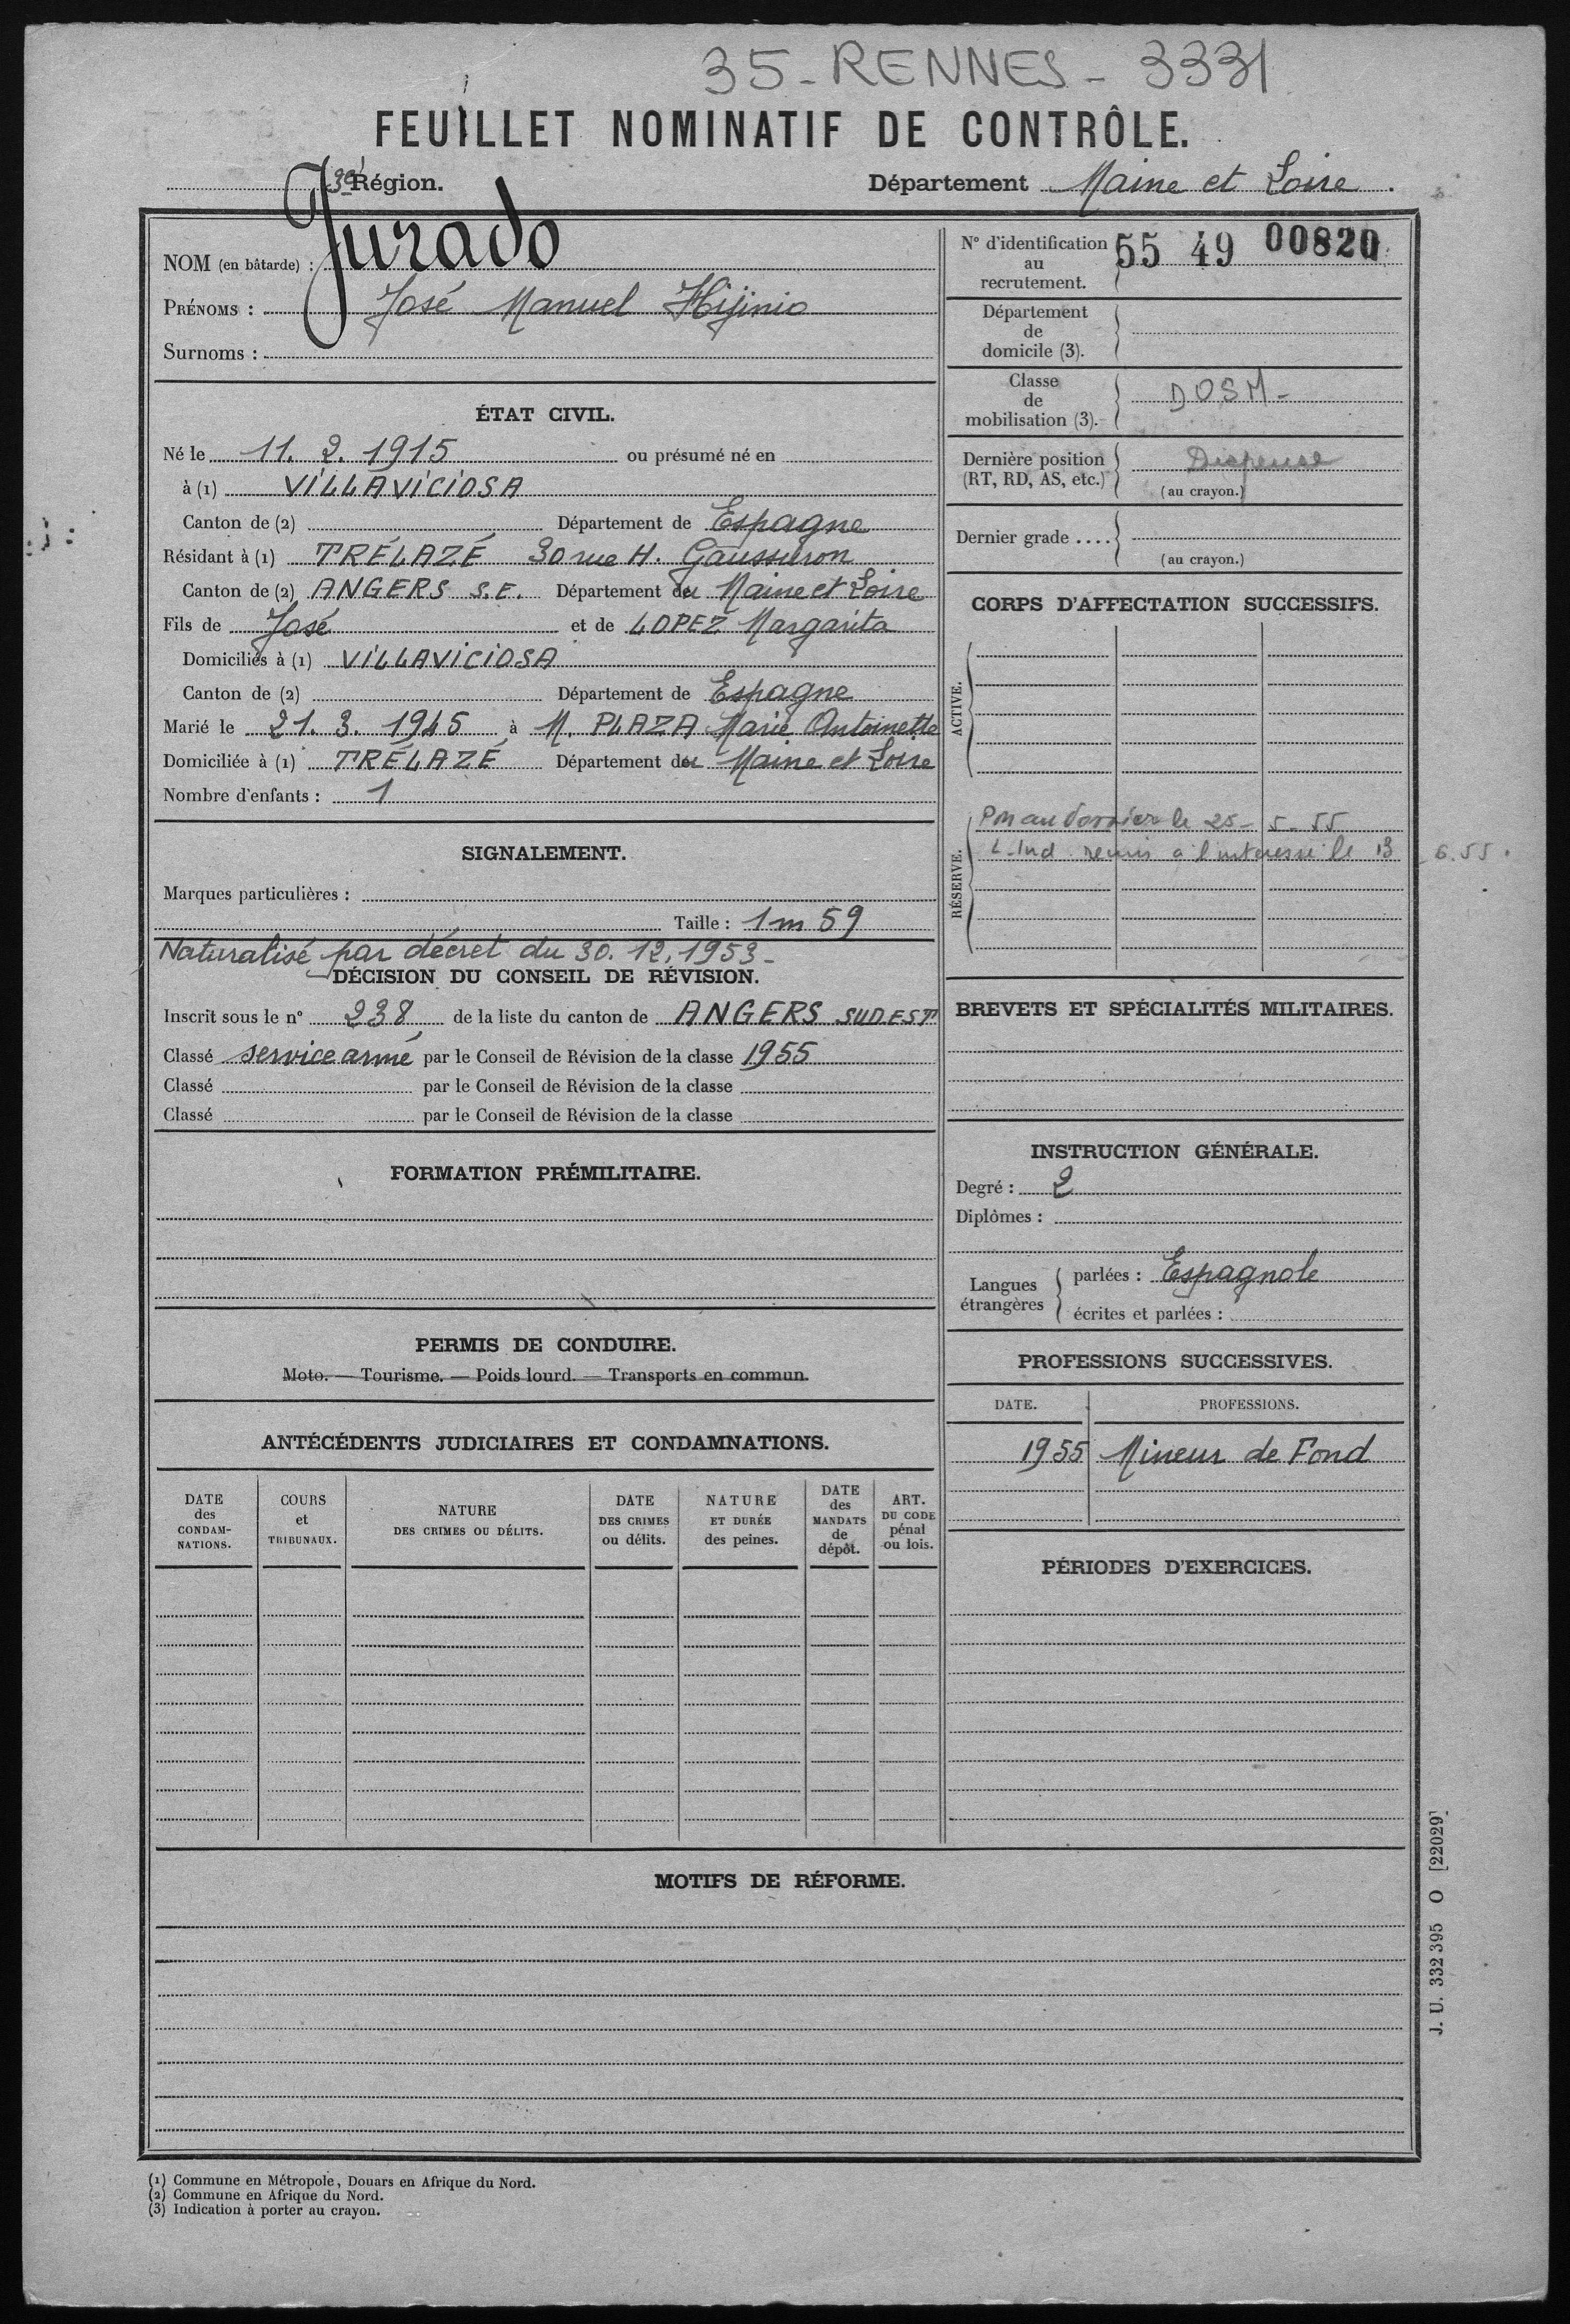 35 - RENNES - 3331
FEUILLET NOMINATIF DE CONTRÔLE.
3e Région.
Département Maine et Loire.
NOM (en bâtarde) : Jurado
PRÉNOMS : José Manuel Hijinio
Surnoms :
ÉTAT CIVIL.
Né le 11. 2. 1915 ou présumé né en
à (1) VILLAVICIOSA
Canton de (2) Département de Espagne
Résidant à (1) TRÉLAZÉ 30 rue H. Gaussuron
Canton de (2) ANGERS S.E. Département du Maine et Loire
Fils de José et de LOPEZ Margarita
Domiciliés à (1) VILLAVICIOSA
Canton de (2) Département de Espagne
Marié le 21. 3. 1945 à M. PLAZA Marie Antoinette
Domiciliée à (1) TRÉLAZÉ Département du Maine et Loire
Nombre d'enfants : 1
SIGNALEMENT.
Marques particulières :
Taille : 1m 59
Naturalisé par décret du 30. 12. 1953 -
DÉCISION DU CONSEIL DE RÉVISION.
Inscrit sous le n° 238 de la liste du canton de ANGERS SUD EST
Classé service armé par le Conseil de Révision de la classe 1955
Classé par le Conseil de Révision de la classe
Classé par le Conseil de Révision de la classe
FORMATION PRÉMILITAIRE.
PERMIS DE CONDUIRE.
Moto. — Tourisme. — Poids lourd. — Transports en commun.
ANTÉCÉDENTS JUDICIAIRES ET CONDAMNATIONS.
DATE des CONDAM-NATIONS.
COURS et TRIBUNAUX.
NATURE DES CRIMES OU DÉLITS.
DATE DES CRIMES ou délits.
NATURE ET DURÉE des peines.
DATE des MANDATS de dépôt.
ART. DU CODE pénal ou lois.
N° d'identification au recrutement. 55 49 00820
Département de domicile (3).
Classe de mobilisation (3). DOSM -
Dernière position (RT, RD, AS, etc.) Dispensé
(au crayon.)
Dernier grade ....
(au crayon.)
CORPS D'AFFECTATION SUCCESSIFS.
ACTIVE.
RÉSERVE.
au dossier le 25 - 5 - 55
L. Ind remis à l'intéressé le 13 6.55.
BREVETS ET SPÉCIALITÉS MILITAIRES.
INSTRUCTION GÉNÉRALE.
Degré : 2
Diplômes :
Langues étrangères
parlées : Espagnole
écrites et parlées :
PROFESSIONS SUCCESSIVES.
DATE. PROFESSIONS.
1955 Mineur de Fond
PÉRIODES D'EXERCICES.
MOTIFS DE RÉFORME.
(1) Commune en Métropole, Douars en Afrique du Nord.
(2) Commune en Afrique du Nord.
(3) Indication à porter au crayon.
J. U. 332395 O [22029]